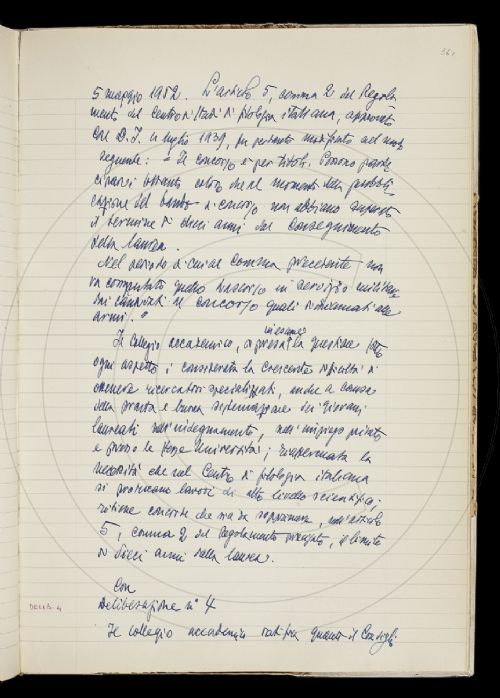 361
5 maggio 1952. L'articolo 5, comma 2 del Regola
mento del Centro di studi di filologia italiana, approvato
col D. I. luglio 1939, fu pertanto modificato nel modo
seguente: "Il concorso è per titoli. Possono parte
ciparvi soltanto coloro che al momento della pubbli
cazione del bando di concorso non abbiano superato
il termine di dieci anni dal conseguimento
della laurea.
Nel periodo di cui al comma precedente non
va computato quello trascorso in servizio militare
dai candidati al concorso quali richiamati alle
armi."
Il Collegio accademico, ripresa in esame la questione sotto
ogni aspetto; considerata la crescente difficoltà di
ottenere ricercatori specializzati, anche a causa
della pronta e buona sistemazione dei giovani
laureati nell'insegnamento, nell'impiego privato
e presso le stesse Università; riaffermata la
necessità che nel Centro di filologia italiana
si producano lavori di alto livello scientifico;
ritiene concorde che sia da sopprimere, nell'articolo
5, comma 2 del Regolamento precitato, il limite
di dieci anni dalla laurea.
Con
DELIB. 4
Deliberazione n° 4
Il collegio accademico ratifica quanto il Consigli